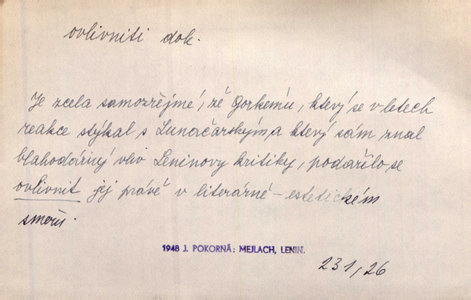 ovlivniti dok.
Je zcela samozřejmé, že Gorkému, který se v letech
reakce stýkal s Lunačarským a který sám znal
blahodárný vliv Leninovy kritiky, podařilo se
ovlivnit jej právě v literárně-estetickém
směru.
1948 J. POKORNÁ: MEJLACH, LENIN.
231/26